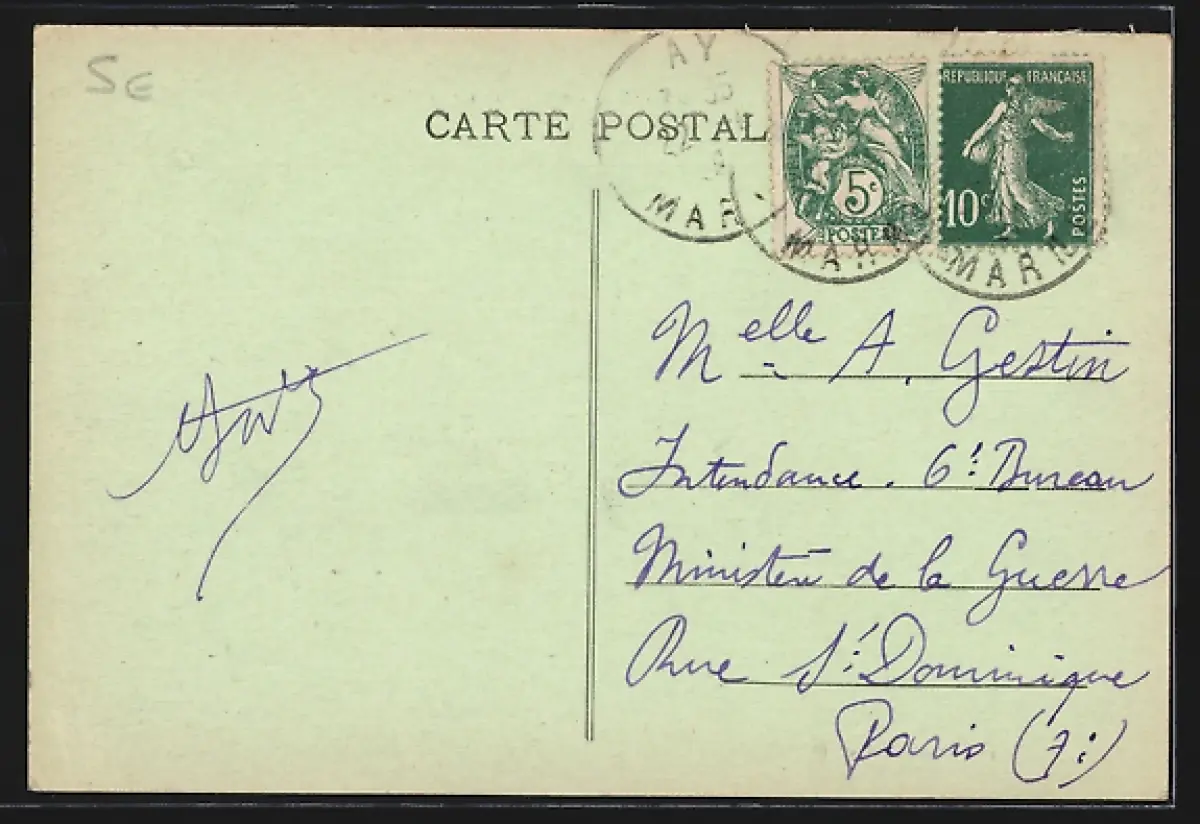 5E
CARTE POSTAL
AY
MAR
5c
POSTES
MAR
REPUBLIQUE FRANÇAISE
10c
POSTES
MARN
Melle A. Gestin
Intendance. 6e Bureau
Ministère de la Guerre
Rue St Dominique
Paris (7e)